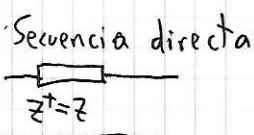 Secuencia directa
Z⁺=Z